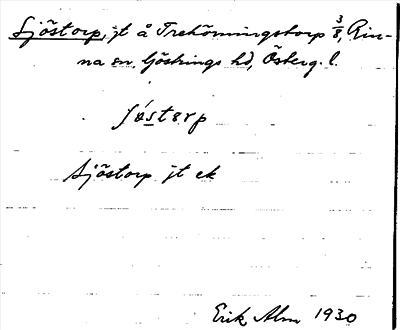 Sjöstorp, jt å Trehörningstorp 3/8, Rin-
na sn Göstrings hd, Österg. l.
Sjöstorp jt ek
Erik Alm 1930